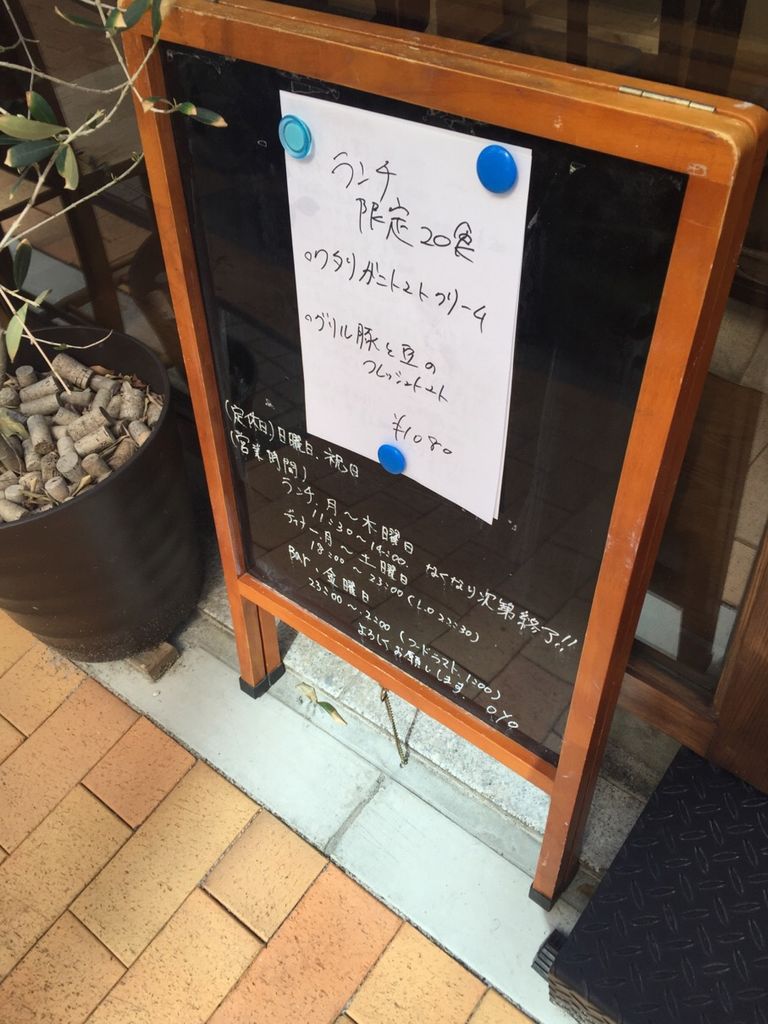 ランチ
限定20食
○ワタリガニトマトクリーム
○グリル豚と豆の
フレッシュトマト
¥1080
(定休日)日曜日、祝日
(営業時間)
ランチ、月〜木曜日
11:30〜14:00 なくなり次第終了!!
ディナー、月〜土曜日
18:00〜23:00(L.O 22:30)
Bar、金曜日
23:00〜2:00(フードラスト、1:00)
よろしくお願いします。